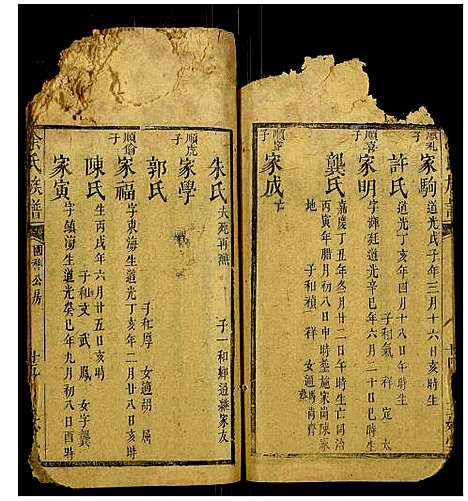 順礼子
家駒 道光戊子年三月十六日亥時生
許氏 道光丁亥年四月十八日午時生
子和氣 祥 定 太
順喜子
家明 字 廷道光辛巳年六月二十日巳時生
龔氏 嘉慶丁丑年冬月廿二日午時生亡同治
丙寅年腊月初八日申時 施家崗陳家
地 子和禎 祥 女適 馬 尚 齊
家成
朱氏 夫死再醮
子一和鄉道 朱家友
順虎子
家學
郭氏
順倫子
家福 字東海生道光丁亥年二月廿八日亥時
子和厚 女適胡
陳氏 生丙戌年六月廿五日亥時
子和文 武 鳳 女字龔
家寅 字鎮海生道光癸巳年九月初八日酉時
余氏族譜
國祥公房